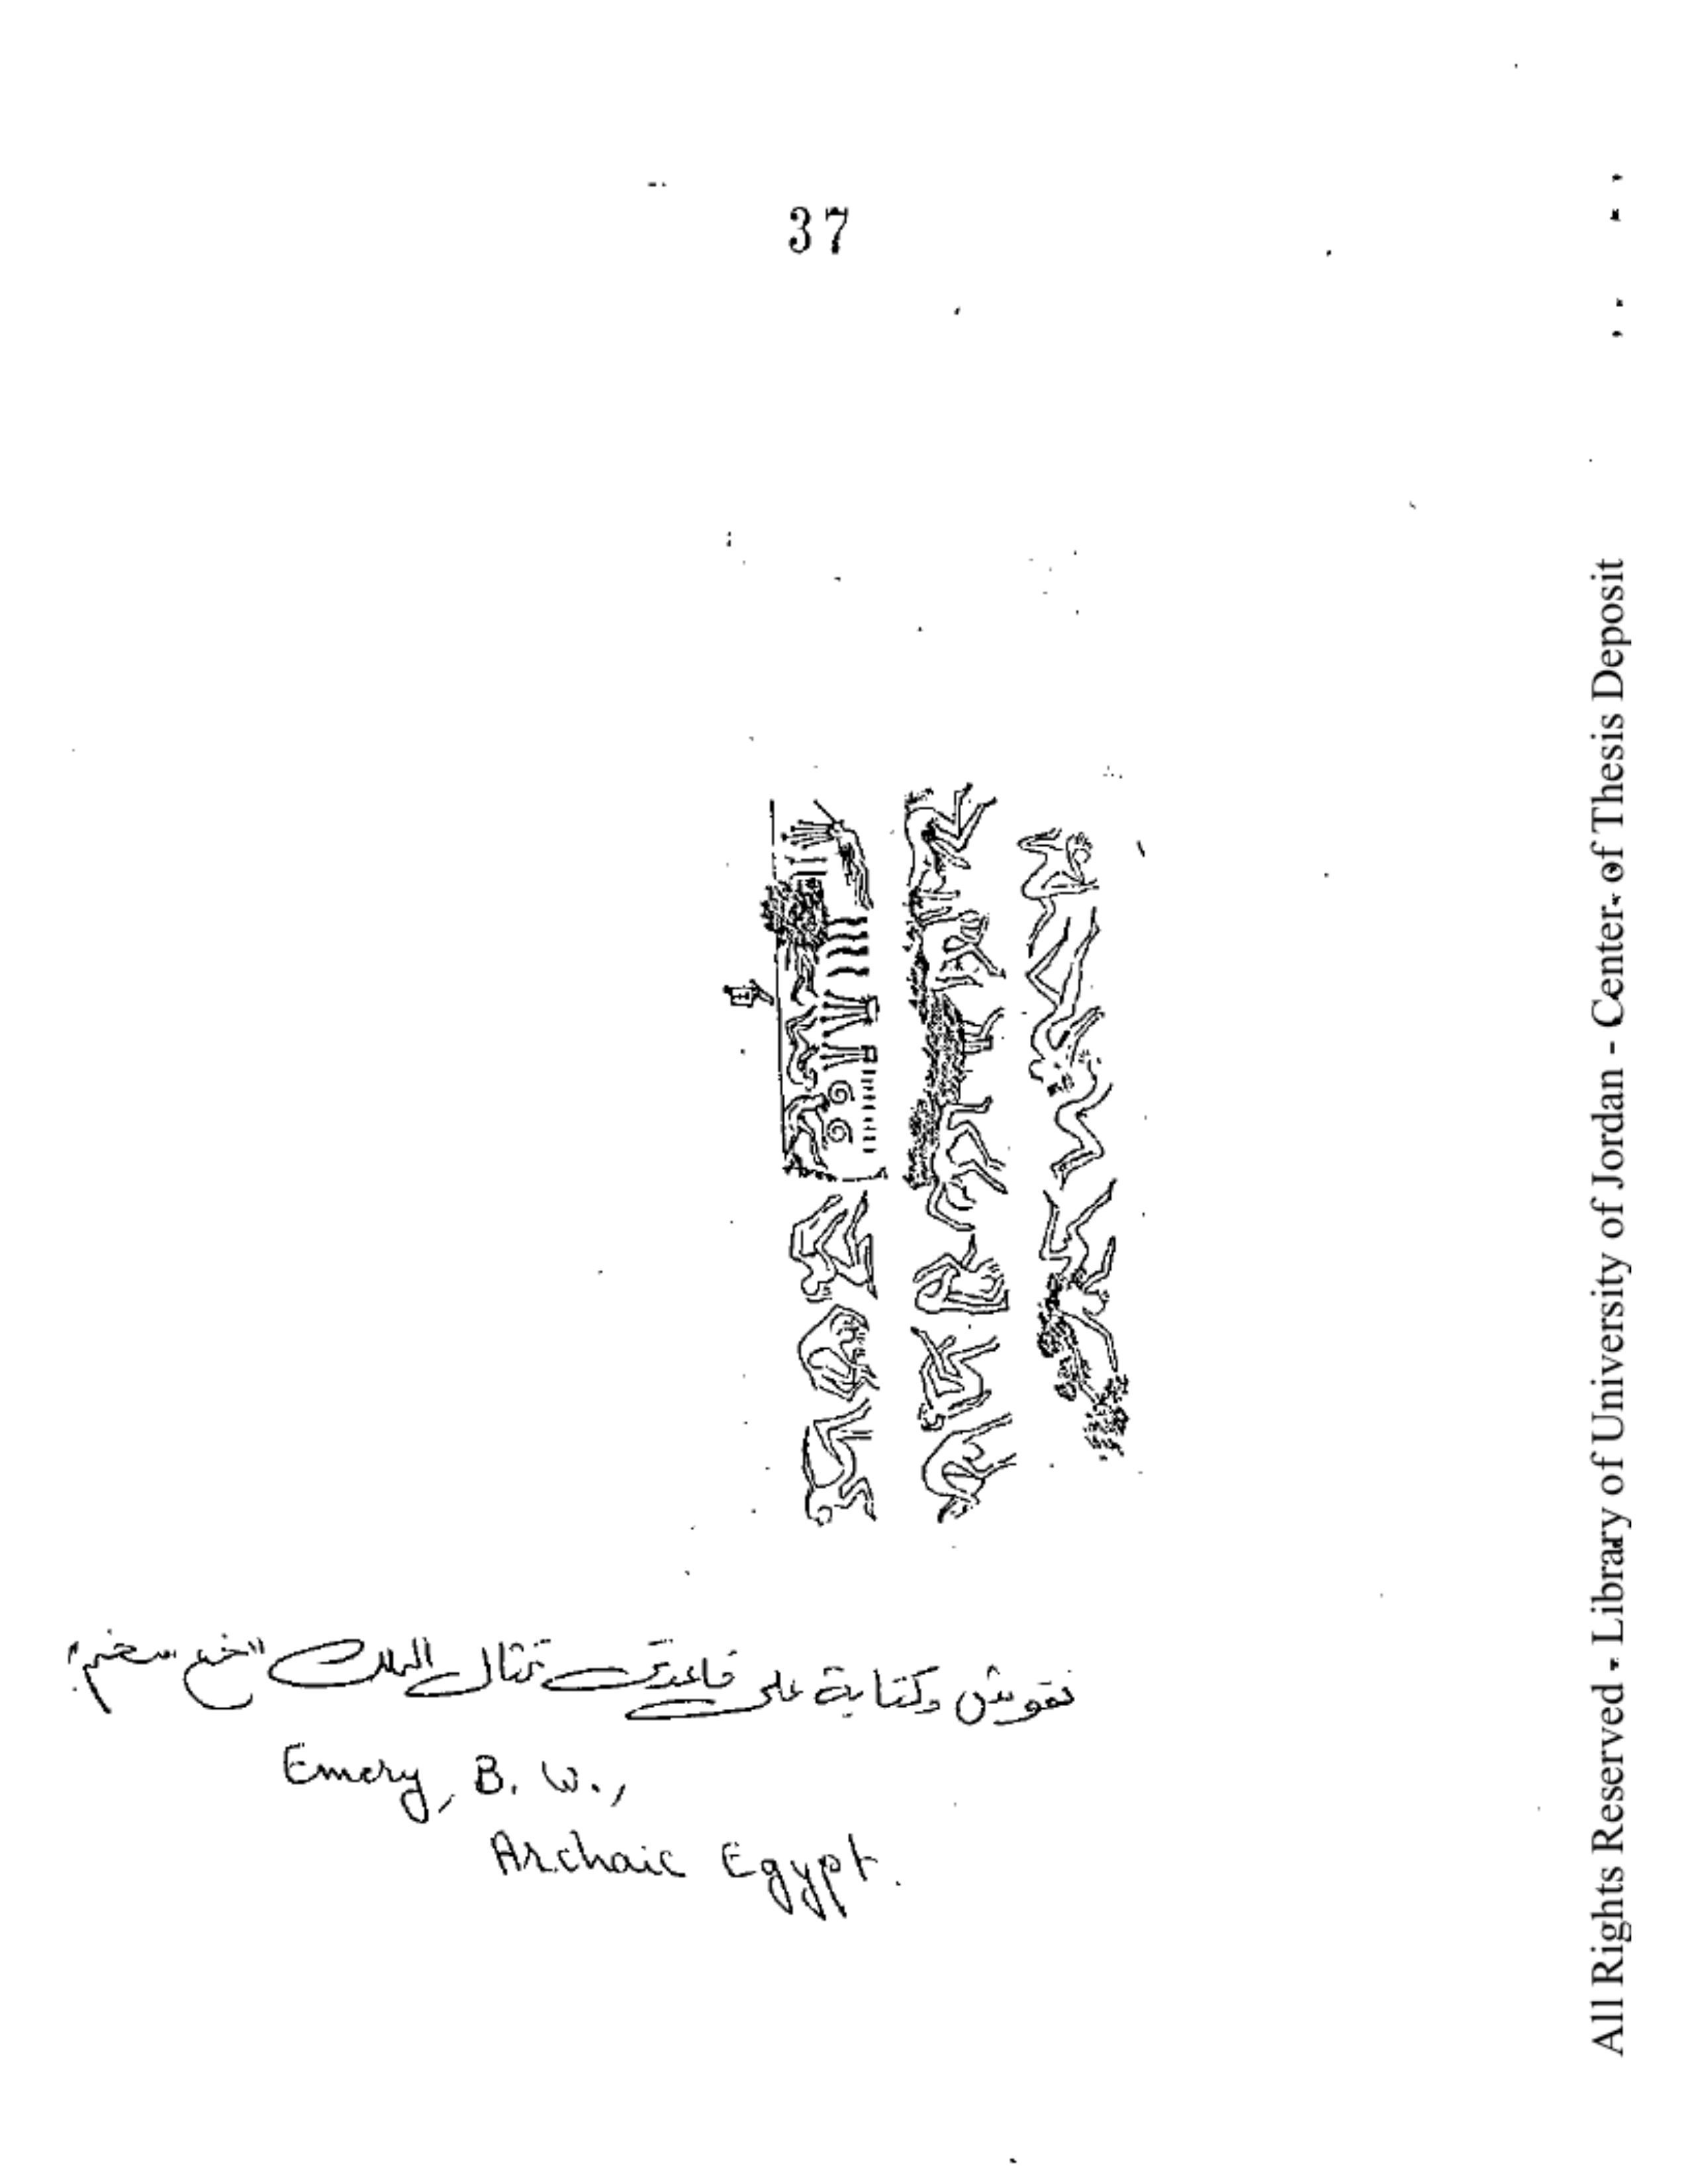 37
نقوش وكتابة على قاعدتى تمثال الملك "خع سخم"
Emery, B. W.,
Archaic Egypt.
All Rights Reserved - Library of University of Jordan - Center of Thesis Deposit